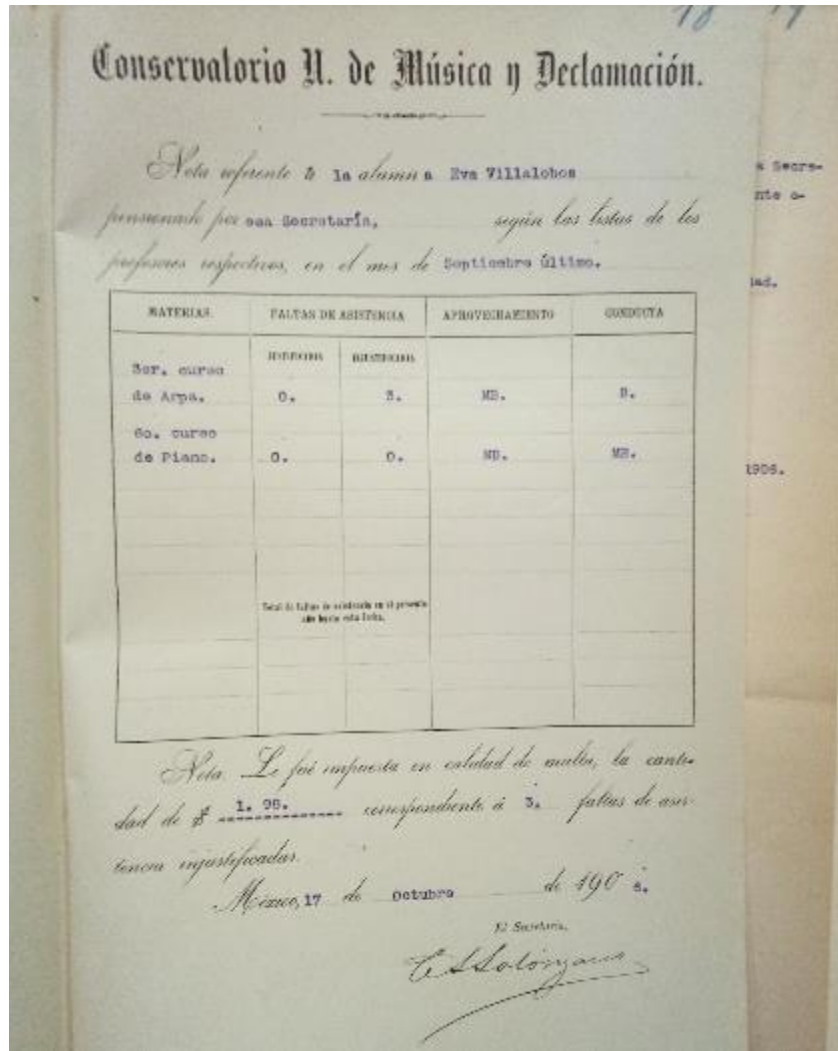 Conservatorio N. de Música y Declamación.
Nota referente á la alumn a Eva Villalobos
pensionado por esa Secretaría, según las listas de los
profesores respectivos, en el mes de Septiembre último.
MATERIAS. FALTAS DE ASISTENCIA APROVECHAMIENTO CONDUCTA
JUSTIFICADAS INJUSTIFICADAS
3er. curso
de Arpa. 0. 3. MB. B.
6o. curso
de Piano. 0. 0. MB. MB.
Total de faltas de asistencia en el presente
año hasta esta fecha.
Nota. Le fué impuesta en calidad de multa, la canti-
dad de $ 1. 98. correspondiente á 3. faltas de asis-
tencia injustificadas.
México, 17 de Octubre de 190 6.
El Secretario,
a Secre-
nte o-
dad.
1906.